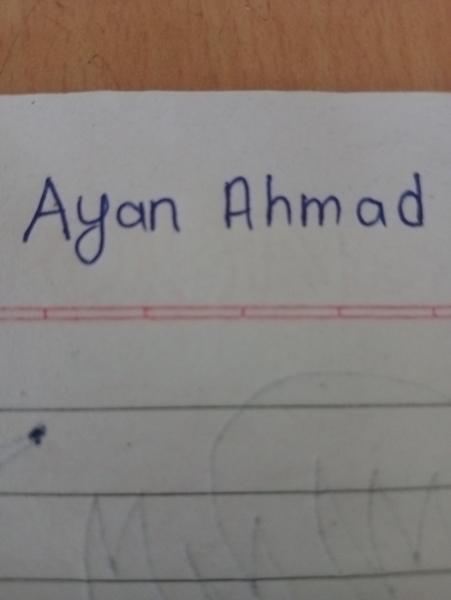 Ayan Ahmad